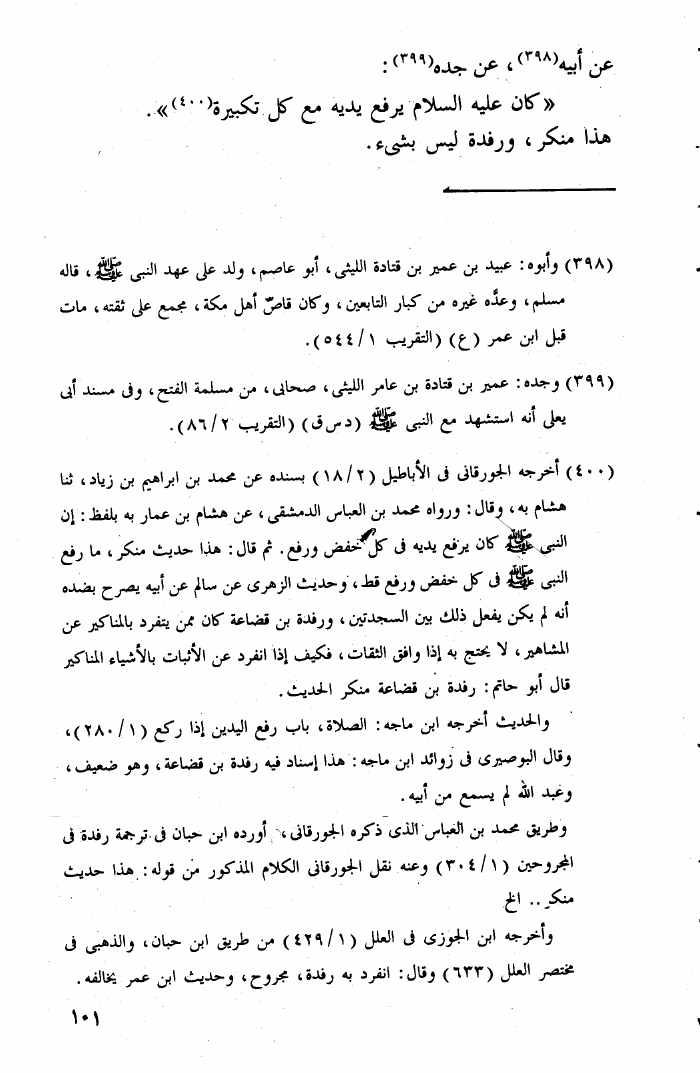 عن أبيه(٣٩٨)، عن جده(٣٩٩):
«كان عليه السلام يرفع يديه مع كل تكبيرة(٤٠٠)».
هذا منكر، ورفدة ليس بشىء.
(٣٩٨) وأبوه: عبيد بن عمير بن قتادة الليثى، أبو عاصم، ولد على عهد النبى ﷺ، قاله
مسلم، وعدَّه غيره من كبار التابعين، وكان قاصّ أهل مكة، مجمع على ثقته، مات
قبل ابن عمر (ع) (التقريب ١/٥٤٤).
(٣٩٩) وجده: عمير بن قتادة بن عامر الليثى، صحابى، من مسلمة الفتح، وفى مسند أبى
يعلى أنه استشهد مع النبى ﷺ (د س ق) (التقريب ٢/٨٦).
(٤٠٠) أخرجه الجورقانى فى الأباطيل (٢/١٨) بسنده عن محمد بن ابراهيم بن زياد، ثنا
هشام به، وقال: ورواه محمد بن العباس الدمشقى، عن هشام بن عمار به بلفظ: إن
النبى ﷺ كان يرفع يديه فى كل خفض ورفع. ثم قال: هذا حديث منكر، ما رفع
النبى ﷺ فى كل خفض ورفع قط، وحديث الزهرى عن سالم عن أبيه يصرح بضده
أنه لم يكن يفعل ذلك بين السجدتين، ورفدة بن قضاعة كان ممن يتفرد بالمناكير عن
المشاهير، لا يحتج به إذا وافق الثقات، فكيف إذا انفرد عن الأثبات بالأشياء المناكير
قال أبو حاتم: رفدة بن قضاعة منكر الحديث.
والحديث أخرجه ابن ماجه: الصلاة، باب رفع اليدين إذا ركع (١/٢٨٠)،
وقال البوصيرى فى زوائد ابن ماجه: هذا إسناد فيه رفدة بن قضاعة، وهو ضعيف،
وعبد الله لم يسمع من أبيه.
وطريق محمد بن العباس الذى ذكره الجورقانى، أورده ابن حبان فى ترجمة رفدة فى
المجروحين (١/٣٠٤) وعنه نقل الجورقانى الكلام المذكور من قوله: هذا حديث
منكر.. الخ
وأخرجه ابن الجوزى فى العلل (١/٤٢٩) من طريق ابن حبان، والذهبى فى
مختصر العلل (٦٣٣) وقال: انفرد به رفدة، مجروح، وحديث ابن عمر يخالفه.
١٠١